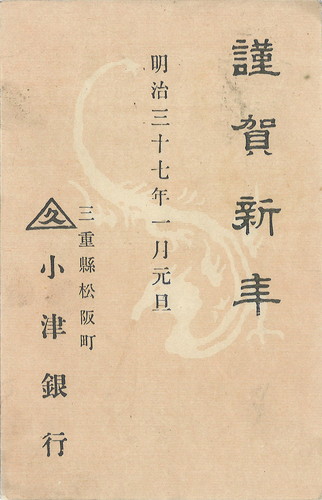 謹賀新年
明治三十七年一月元旦
三重縣松阪町
久
小津銀行